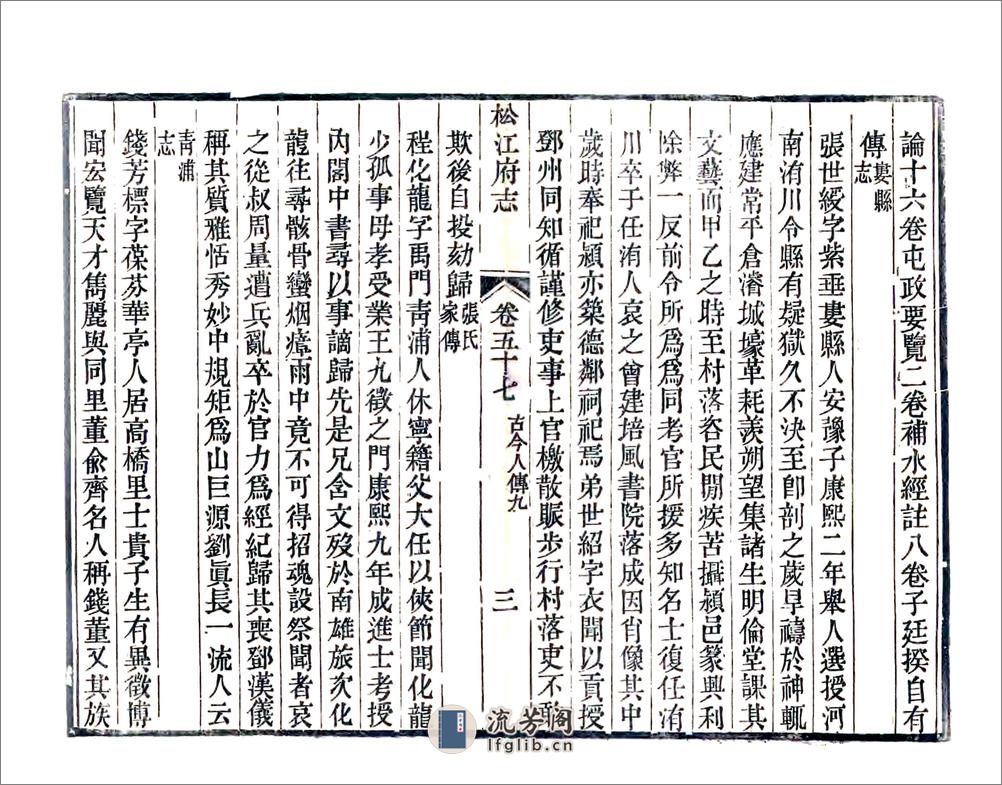 論十六卷屯政要覽二卷補水經註八卷子廷揆自有
傳婁縣志
張世綬字紫垂婁縣人安豫子康熙二年舉人選授河
南洧川令縣有疑獄久不決至卽剖之歲旱禱於神輒
應建常平倉濬城壕革耗羨朔望集諸生明倫堂課其
文藝而甲乙之時至村落咨民閒疾苦攝潁邑篆興利
除弊一反前令所爲爲同考官所援多知名士復任洧
川卒于任洧人哀之曾建培風書院落成因肖像其中
歲時奉祀潁亦築德鄰祠祀焉弟世紹字衣聞以貢授
鄧州同知循謹修吏事上官檄散賑步行村落吏不敢
松江府志 卷五十七 古今人傳九 三
欺後自投劾歸張氏家傳
程化龍字禹門靑浦人休寧籍父大任以俠節聞化龍
少孤事母孝受業王九徵之門康熙九年成進士考授
內閣中書尋以事謫歸先是兄含文歿於南雄旅次化
龍往尋骸骨蠻烟瘴雨中竟不可得招魂設祭聞者哀
之從叔周量遭兵亂卒於官力爲經紀歸其喪鄧漢儀
稱其質雅恬秀妙中規矩爲山巨源劉眞長一流人云
靑浦志
錢芳標字葆芬華亭人居高橋里士貴子生有異徵博
聞宏覽天才雋麗與同里董俞齊名人稱錢董又其族
流芳閣
lfglib.cn